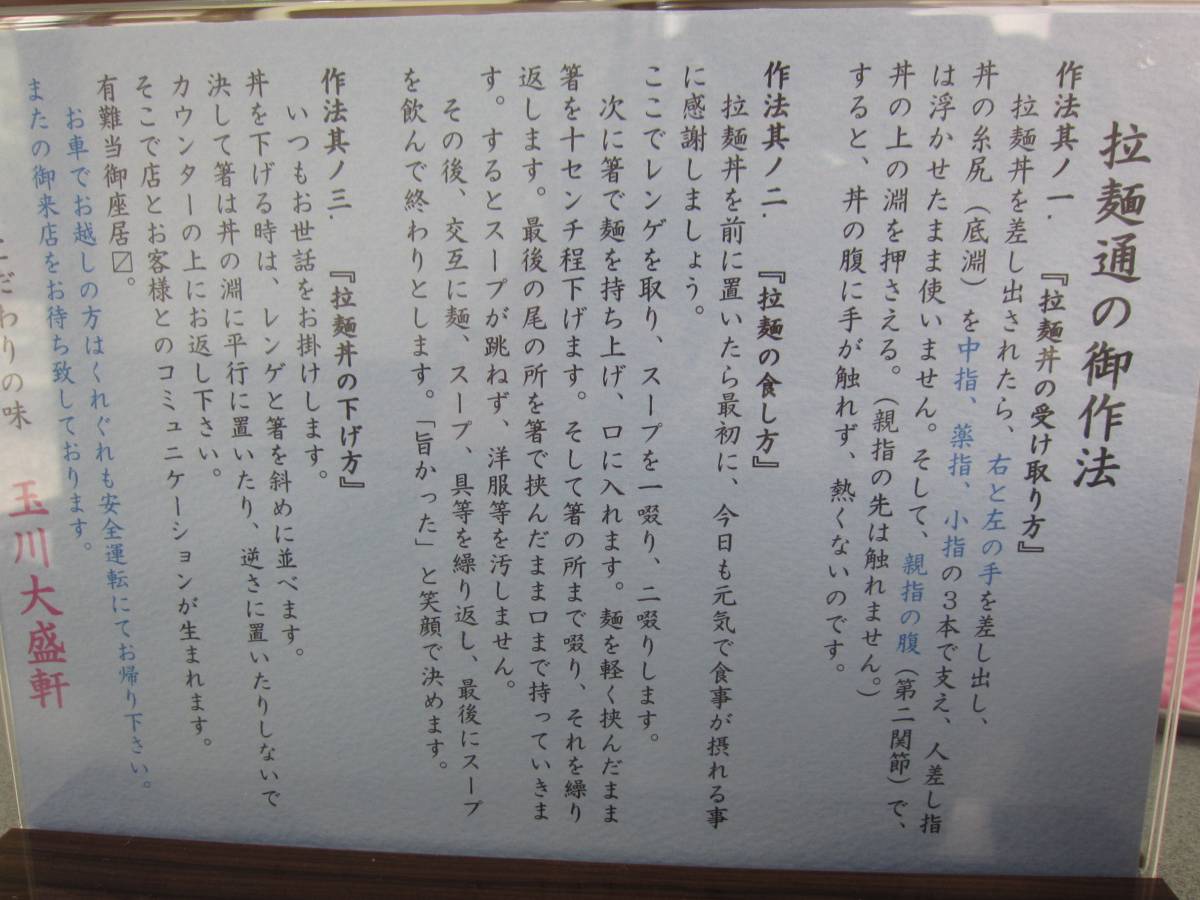 拉麺通の御作法
作法其ノ一.　『拉麺丼の受け取り方』
拉麺丼を差し出されたら、右と左の手を差し出し、
丼の糸尻（底淵）を中指、薬指、小指の３本で支え、人差し指
は浮かせたまま使いません。そして、親指の腹（第二関節）で、
丼の上の淵を押さえる。（親指の先は触れません。）
すると、丼の腹に手が触れず、熱くないのです。
作法其ノ二.　『拉麺の食し方』
拉麺丼を前に置いたら最初に、今日も元気で食事が摂れる事
に感謝しましょう。
ここでレンゲを取り、スープを一啜り、二啜りします。
次に箸で麺を持ち上げ、口に入れます。麺を軽く挟んだまま
箸を十センチ程下げます。そして箸の所まで啜り、それを繰り
返します。最後の尾の所を箸で挟んだまま口まで持っていきま
す。するとスープが跳ねず、洋服等を汚しません。
その後、交互に麺、スープ、具等を繰り返し、最後にスープ
を飲んで終わりとします。「旨かった」と笑顔で決めます。
作法其ノ三.　『拉麺丼の下げ方』
いつもお世話をお掛けします。
丼を下げる時は、レンゲと箸を斜めに並べます。
決して箸は丼の淵に平行に置いたり、逆さに置いたりしないで
カウンターの上にお返し下さい。
そこで店とお客様とのコミュニケーションが生まれます。
有難当御座居〼。
お車でお越しの方はくれぐれも安全運転にてお帰り下さい。
またの御来店をお待ち致しております。
こだわりの味　玉川大盛軒